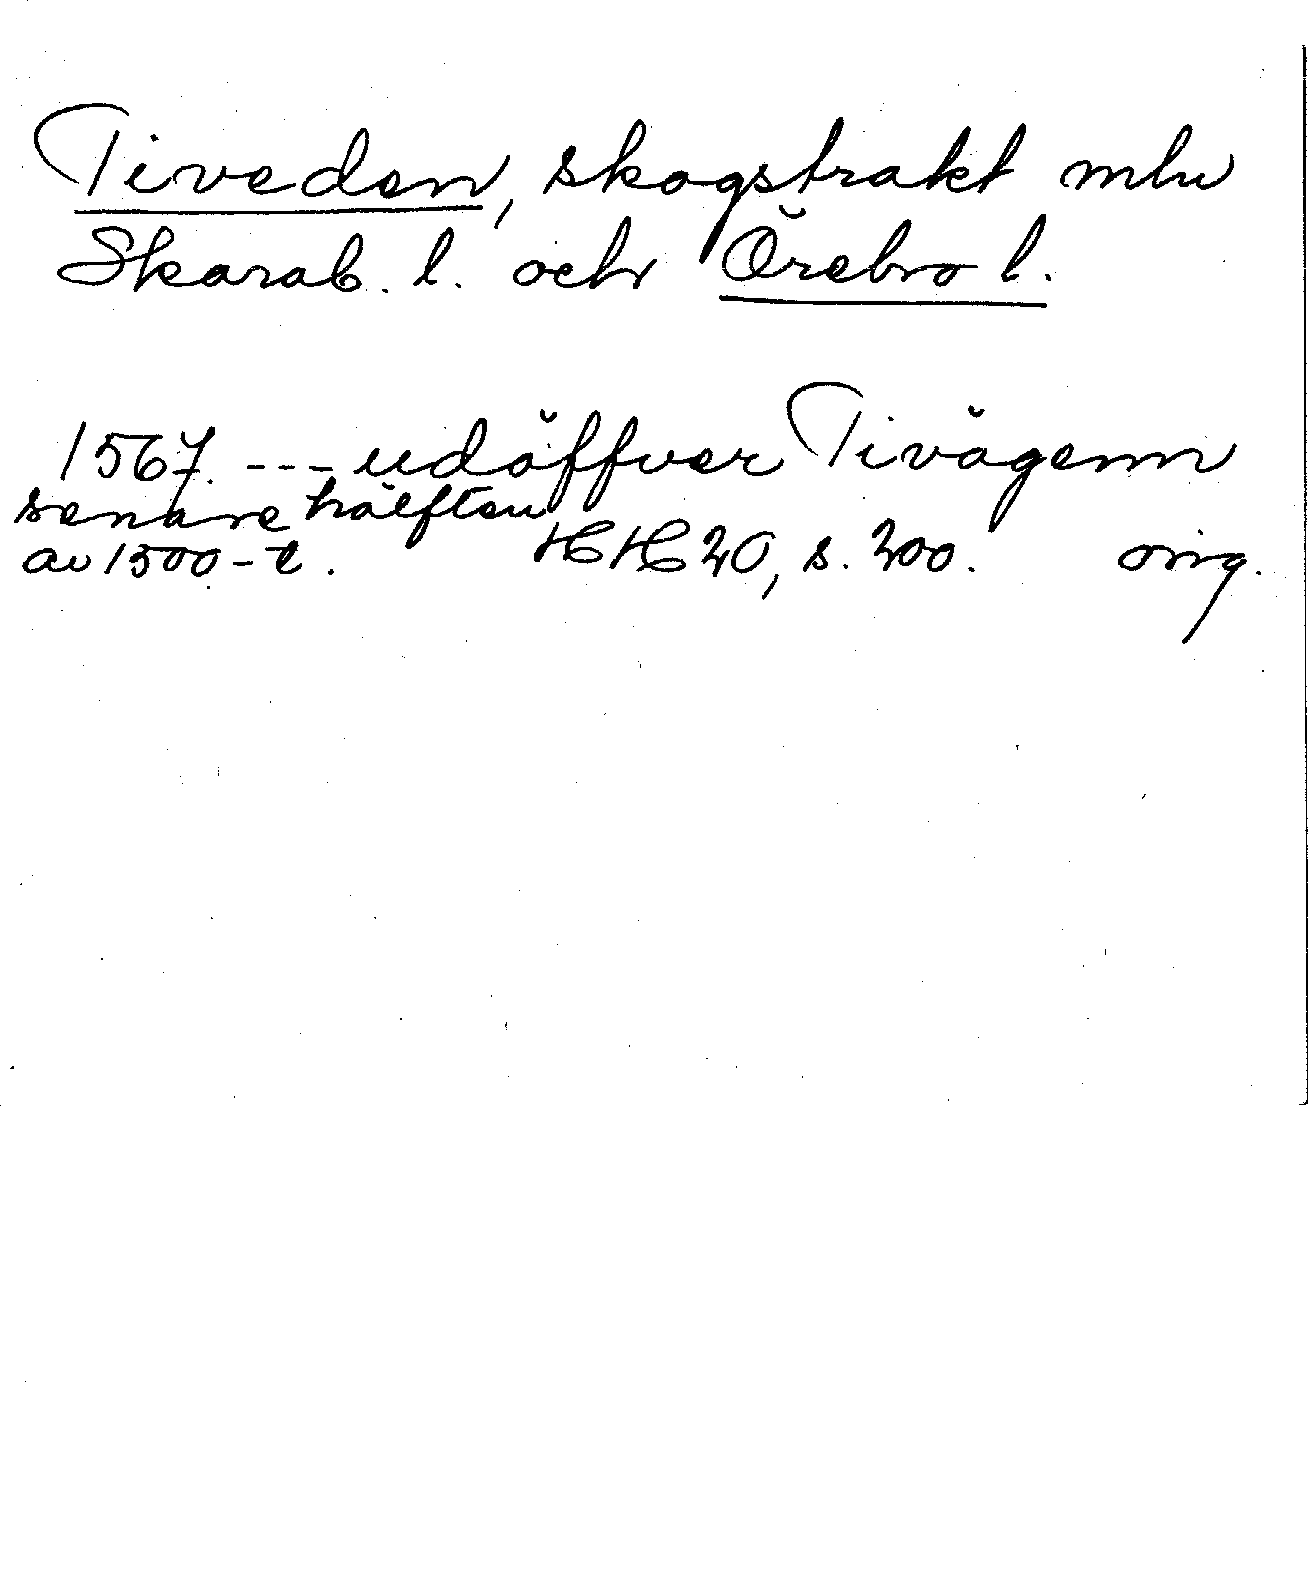 Tiveden, skogstrakt mln
Skarab. l. och Örebro l.
1567. --- udöffver Tivägenn
senare hälften
av 1500-t. HH 20, s. 200. orig.